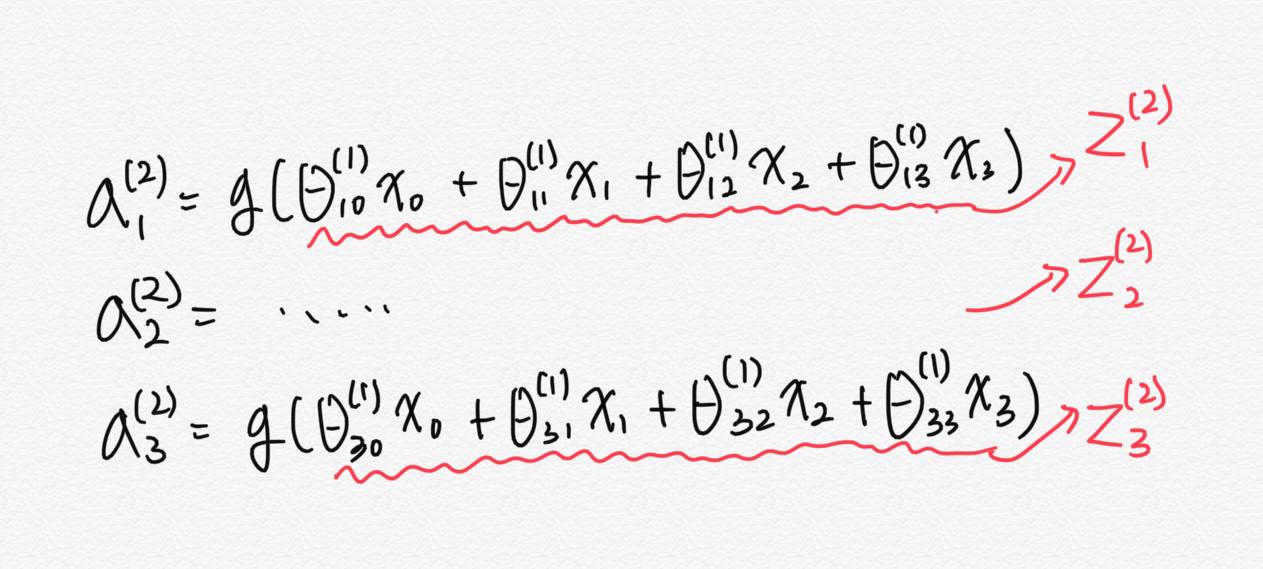 a₁⁽²⁾ = g(θ₁₀⁽¹⁾x₀ + θ₁₁⁽¹⁾x₁ + θ₁₂⁽¹⁾x₂ + θ₁₃⁽¹⁾x₃) → z₁⁽²⁾
a₂⁽²⁾ = ..... → z₂⁽²⁾
a₃⁽²⁾ = g(θ₃₀⁽¹⁾x₀ + θ₃₁⁽¹⁾x₁ + θ₃₂⁽¹⁾x₂ + θ₃₃⁽¹⁾x₃) → z₃⁽²⁾